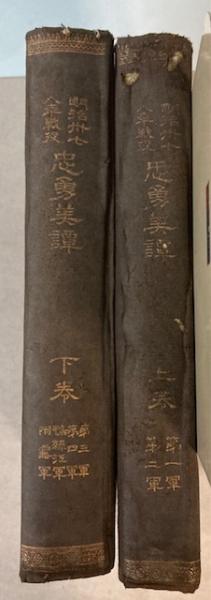 明治卅七
八年戦役
忠勇美譚
上巻
第一軍
第二軍
明治卅七
八年戦役
忠勇美譚
下巻
第三軍
第四軍
鴨緑江軍
附露軍